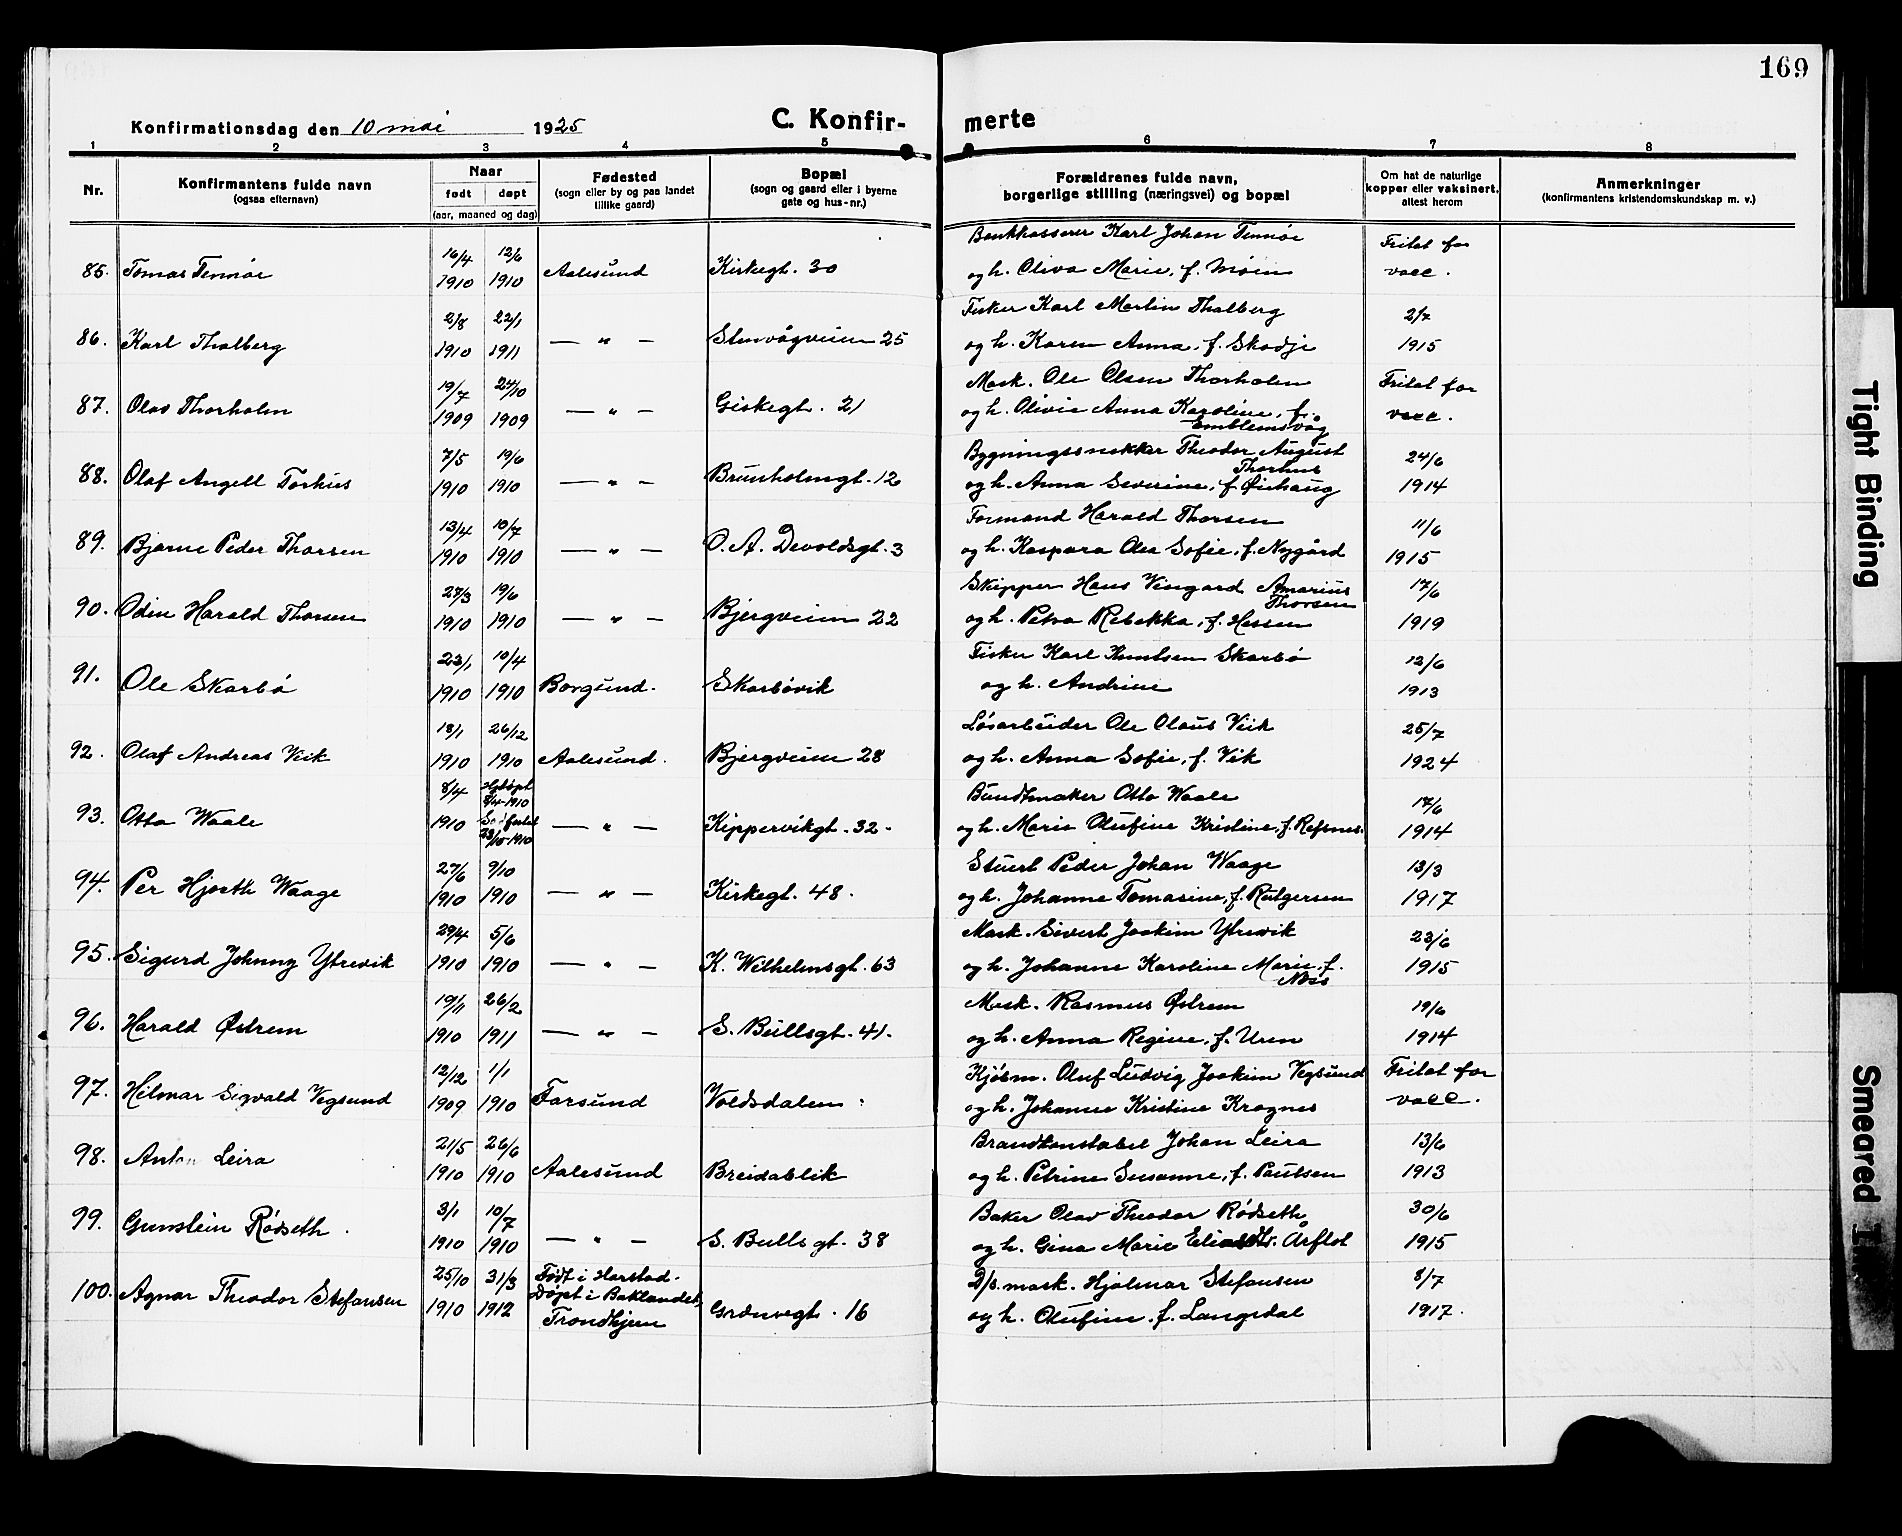 169
Konfirmationsdag den 10 mai 1925
C. Konfir- merte
1 2 3 4 5 6 7 8
Nr.
Konfirmantens fulde navn
(ogsaa efternavn)
Naar
født døpt
(aar, maaned og dag)
Fødested
(sogn eller by og paa landet
tillike gaard)
Bopæl
(sogn og gaard eller i byerne
gate og hus-nr.)
Forældrenes fulde navn,
borgerlige stilling (næringsvei) og bopæl
Om hat de naturlige
kopper eller vaksinert,
attest herom
Anmerkninger
(konfirmantens kristendomskundskap m. v.)
16/4 12/6 Bankkasserer Karl Johan Tennøe Fritat for
85. Tomas Tennøe 1910 1910 Aalesund Kirkegt. 30 og h. Oliva Marie, f. Moen vacc.
2/8 22/1 Fisker Karl Martin Thalberg 2/7
86. Karl Thalberg 1910 1911 — " — Stenvågveien 25 og h. Karen Anna, f. Skodje 1915
19/7 24/10 Mask. Ole Olsen Thorholm Fritat for
87. Olav Thorholm 1909 1909 — " — Giskegt. 21 og h. Olivie Anna Karoline, f. vacc.
Emblemsvåg
7/5 19/6 Bygningssnekker Theodor August 24/6
Thorhus
88. Olaf Angell Torhus 1910 1910 — " — Brunholmgt. 12 og h. Anna Severine, f. Øiehaug 1914
13/4 10/7 Formand Harald Thorsen 11/6
89. Bjarne Peder Thorsen 1910 1910 — " — O. A. Devoldsgt. 3 og h. Kaspara Olea Sofie, f. Nygård 1915
28/3 19/6 Skipper Hans Vingard Amarius 17/6
Thorsen
90. Odin Harald Thorsen 1910 1910 — " — Bjergveien 22 og h. Petra Rebekka, f. Hessen 1919
23/1 10/4 Fisker Karl Knutsen Skarbø 12/6
91. Ole Skarbø 1910 1910 Borgund. Skarbøvik og h. Andrine 1913
18/1 26/12 Løsarbeider Ole Olaus Veik 25/7
92. Olaf Andreas Veik 1910 1910 Aalesund. Bjergveien 28 og h. Anna Sofie, f. Vik 1924
8/4 Hjdøpt 8/4-1910 Bundtmaker Otto Waale 17/6
93. Otto Waale 1910 23/10-1910 — " — Kippervikgt. 32. og h. Marie Olufine Kristine, f. Refsnes. 1914
27/6 9/10 Stuert Peder Johan Waage 13/3
94. Per Hjorth Waage 1910 1910 — " — Kirkegt. 48. og h. Johanne Tomasine, f. Rutgersen 1917
29/4 5/6 Mask. Sivert Joakim Ytrevik 23/6
95. Sigurd Johnny Ytrevik 1910 1910 — " — K. Wilhelmsgt. 63 og h. Johanne Karoline Marie, f. 1915
Nøss
19/11 26/2 Mask. Rasmus Østrem 19/6
96. Harald Østrem 1910 1911 — " — S. Bullsgt. 41. og h. Anna Regine, f. Uren 1914
12/12 1/1 Kjøbm. Oluf Ludvig Joakim Vegsund Fritat for
97. Hilmar Sigvald Vegsund 1909 1910 Farsund Voldsdalen. og h. Johanne Kristine Kragnes vacc.
21/5 26/6 Brandkonstabel Johan Leira 13/6
98. Anton Leira 1910 1910 Aalesund Breidablik og h. Petrine Susanne, f. Paulsen 1913
3/1 10/7 Baker Olav Theodor Rødseth 30/6
99. Gunstein Rødseth. 1910 1910 — " — S. Bulls gt. 38 og h. Gina Marie Årflot 1915
25/10 31/3 Født i Harstad. D/s. mask. Hjalmar Stefansen 8/7
100. Agnar Theodor Stefansen 1910 1912 Døpt i Baklandet, Trondhjem Grønvegt. 16 og h. Olufine, f. Langsdal 1917.
Tight Binding
Smeared